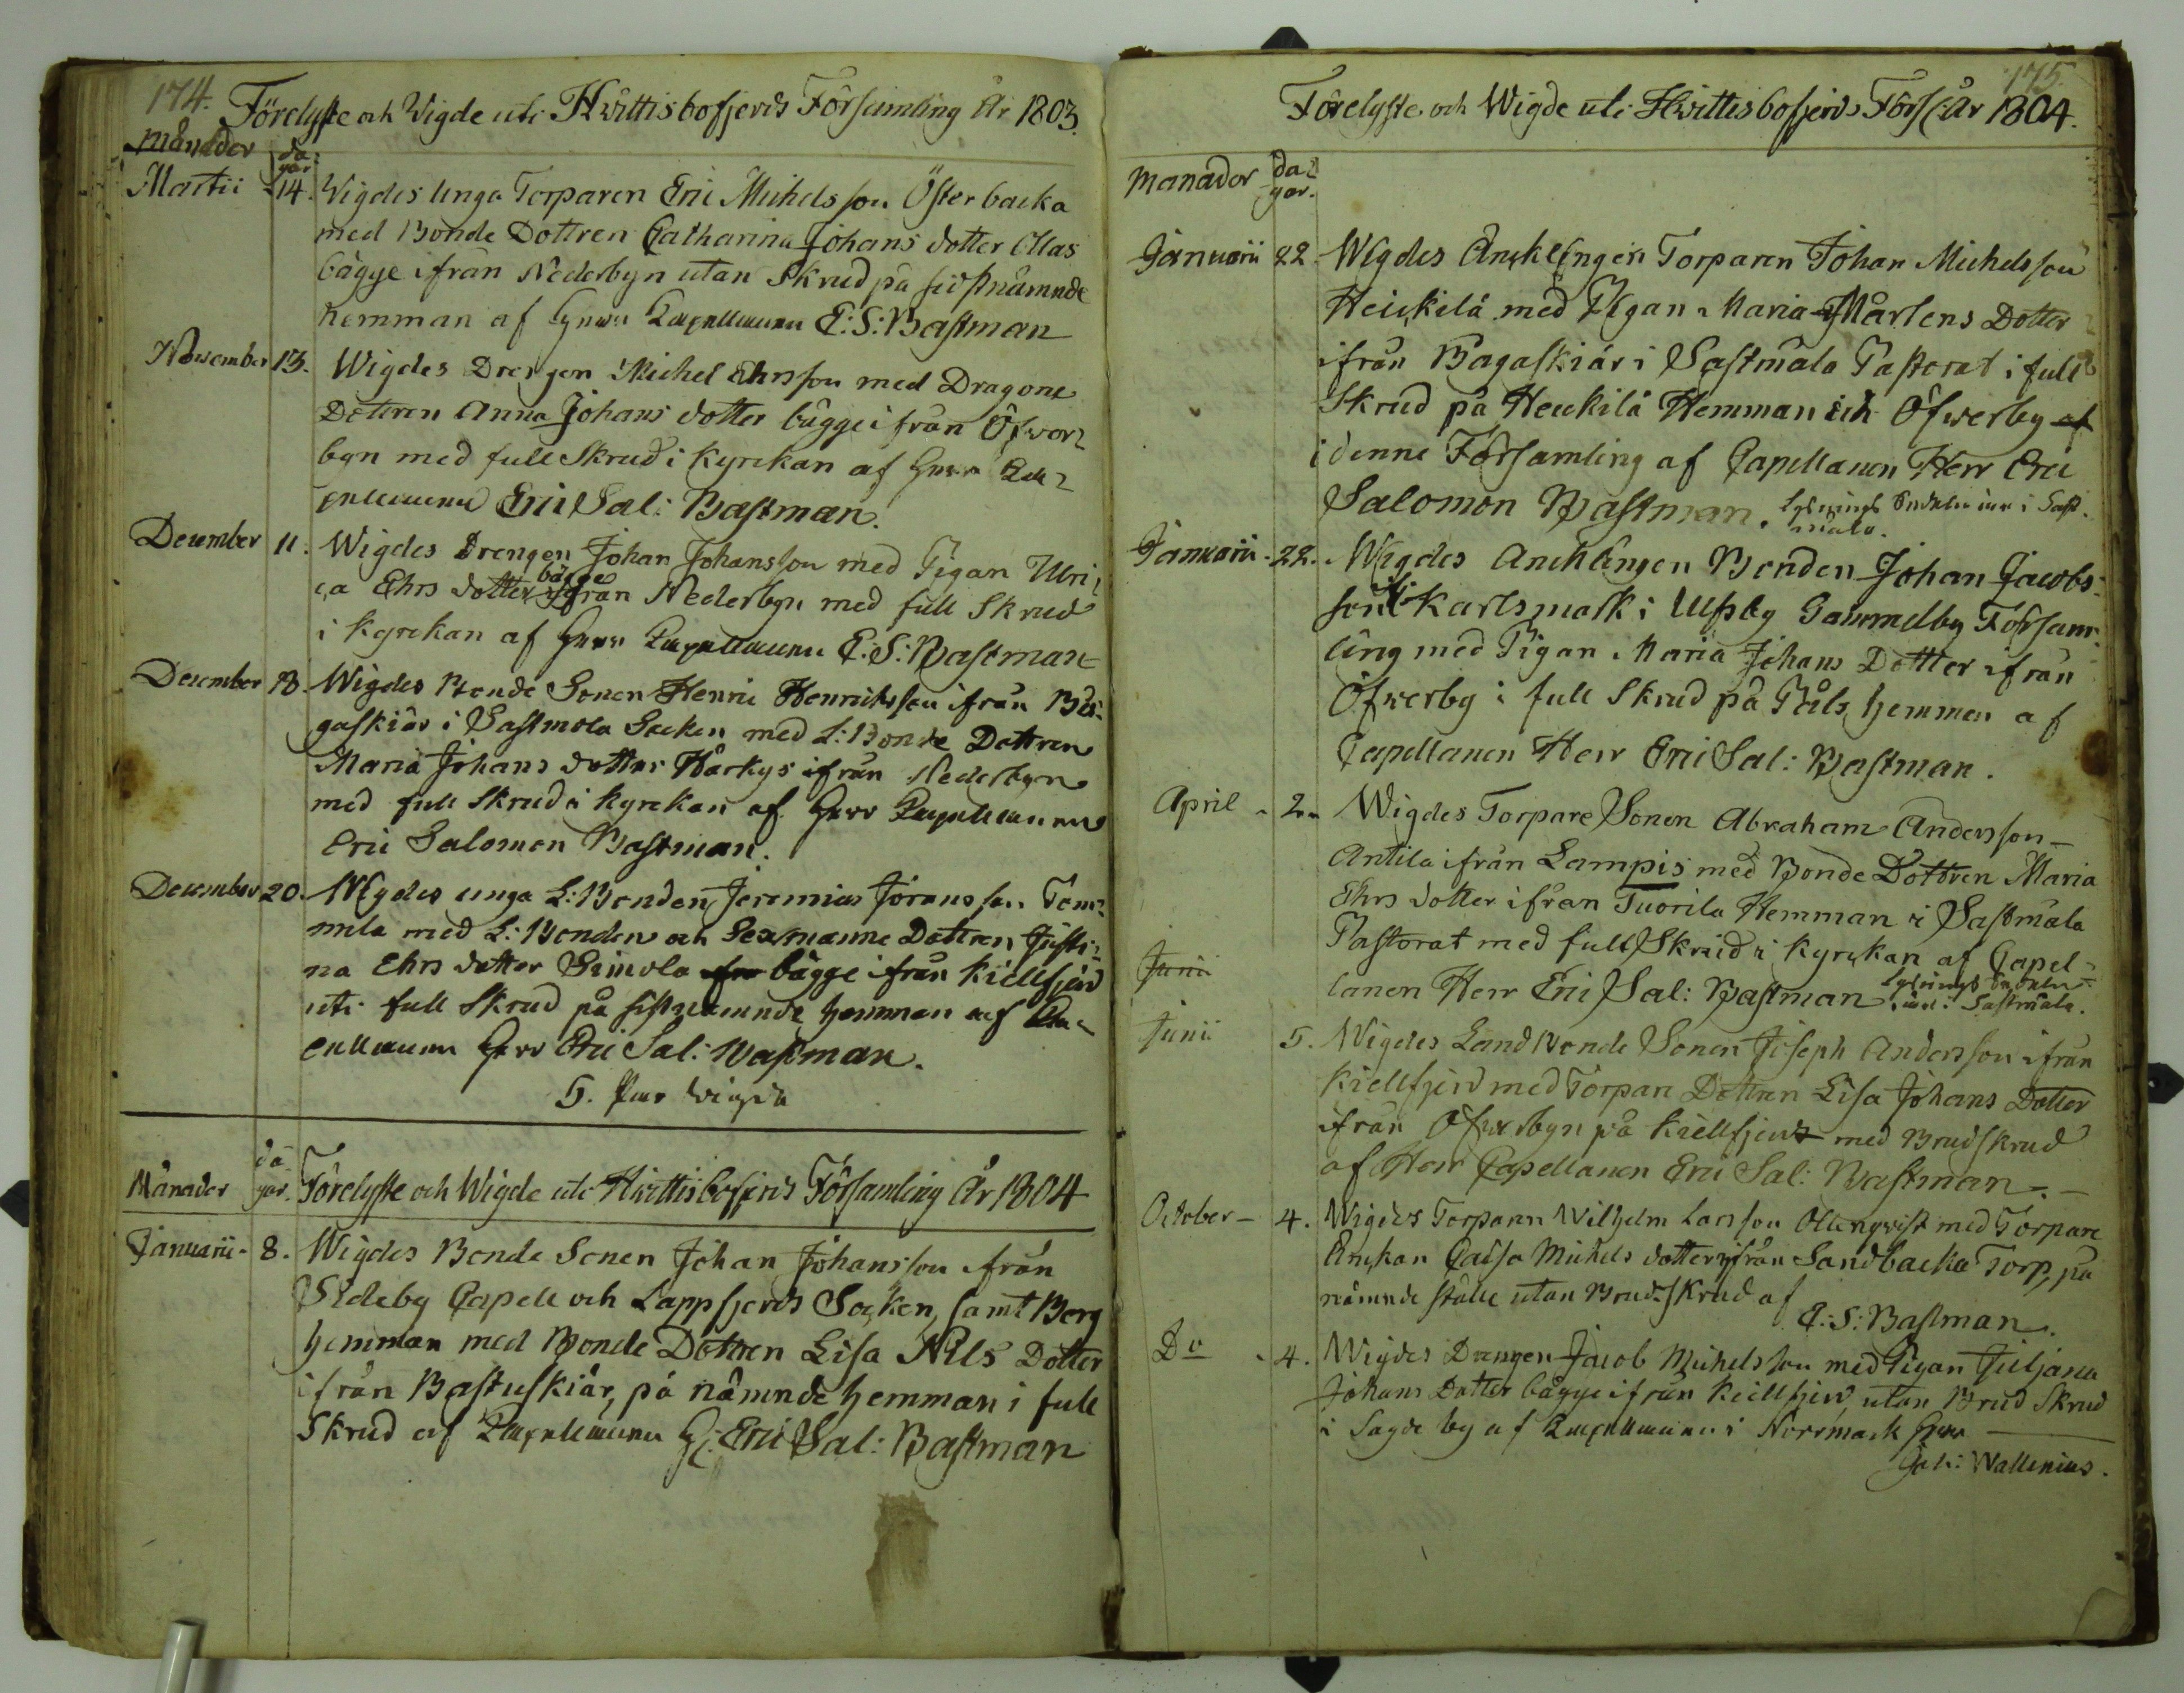 174.
Förelyste och Wigde uti Hwittisbofjerds Församling År 1803.
Månader dagar
Martii 14. Wigdes Unga Torparen Eric Michelsson Österbacka
med Bonde Dottren Catharina Johans dotter Ollas
bägge ifrån Nederbyn utan Skrud på sidstnämnde
hemman af Herr Capellanen E: S: Bastman
November 13. Wigdes Drengen Michel Ehrsson med Dragone
Dottren Anna Johans dotter bägge ifrån Öfwer-
byn med full Skrud i Kyrckan af Herr Ca-
pellanen Eric Sal: Bastman.
December 11. Wigdes Drengen Johan Johansson med Pigan Ulri-
ca Ehrs dotter bägge ifrån Nederbyn med full Skrud
i Kyrckan af Herr Capellanen E: S: Bastman
December 18. Wigdes Bonde Sonen Henric Henrichsson ifrån Ba-
gaskiär i Sastmola Socken med L: Bonde Dottren
Maria Johans dotter Härkys ifrån Nederbyn
med full Skrud i Kyrckan af Herr Capellanen
Eric Salomon Bastman.
December 20. Wigdes unga L: Bonden Jeremias Jöransson Tom-
mila med L: Bonden och Sexmanne Dottren Justi-
na Ehrs dotter Simola bägge ifrån Kiellfjerd
uti full Skrud på sistnämnde hemman af Ca-
pellanen Herr Eric Sal: Bastman.
5. Par wigda
Månader dagar. Förelyste och Wigde uti Hwittisbofjerds Församling År 1804
Januarii - 8. Wigdes Bonde Sonen Johan Johansson ifrån
Sideby Capell och Lappfjerds Socken, samt Berg
hemman med Bonde Dottren Lisa Nils Dotter
ifrån Bastuskiär, på nämnde hemman i full
Skrud af Capellanen H: Eric Sal: Bastman
175.
Förelyste och Wigde uti Hwittisbofjerds Förs: År 1804.
Manader dagar.
Januarii 22. Wigdes Ancklingen Torparen Johan Michelsson
Heickilä med Pigan Maria Mårtens Dotter
ifrån Bagaskiär i Sastmola Pastorat i full
Skrud på Heickilä Hemman och Öfwerby af
i denne Församling af Capellanen Herr Eric
Salomon Bastman. Lysnings Sedelen inn i Sast-
mola.
Januarii - 22. Wigdes Ancklingen Bonden Johan Jacobs-
son Karlsmark i Ulfsby Gammelby Försam-
ling med Pigan Maria Johans Dotter ifrån
Öfwerby i full Skrud på Påls hemman af
Capellanen Herr Eric Sal: Bastman.
April - 2. Wigdes Torpare Sonen Abraham Andersson
Antila ifrån Lampis med Bonde Dottren Maria
Ehrs dotter ifrån Tuorila Hemman i Sastmola
Pastorat med full Skrud i Kyrckan af Capel-
Junii
lanen Herr Eric Sal: Bastman Lysnings Sedelen
inn i Sastmola.
Junii 5. Wigdes Landbonde Sonen Joseph Andersson ifrån
Kiellfjerd med Torpare Dottren Lisa Johans Dotter
ifrån Öfwerbyn på Kiellfjerd med Brudskrud
af Herr Capellanen Eric Sal: Bastman.
October - 4. Wigdes Torparen Wilhelm Larsson Ollenqwist med Torpare
Enckan Caisa Michels dotter ifrån Sandbacka Torp, på
nämnde ställe utan Brudskrud af
E: S: Bastman.
Do - 4. Wigdes Drengen Jacob Michelsson med Pigan Juljana
Johans Dotter bägge ifrån Kiellfjerd utan Brud Skrud
i Sagde by af Capellanen i Norrmark Herr
Joh: Wallenius.